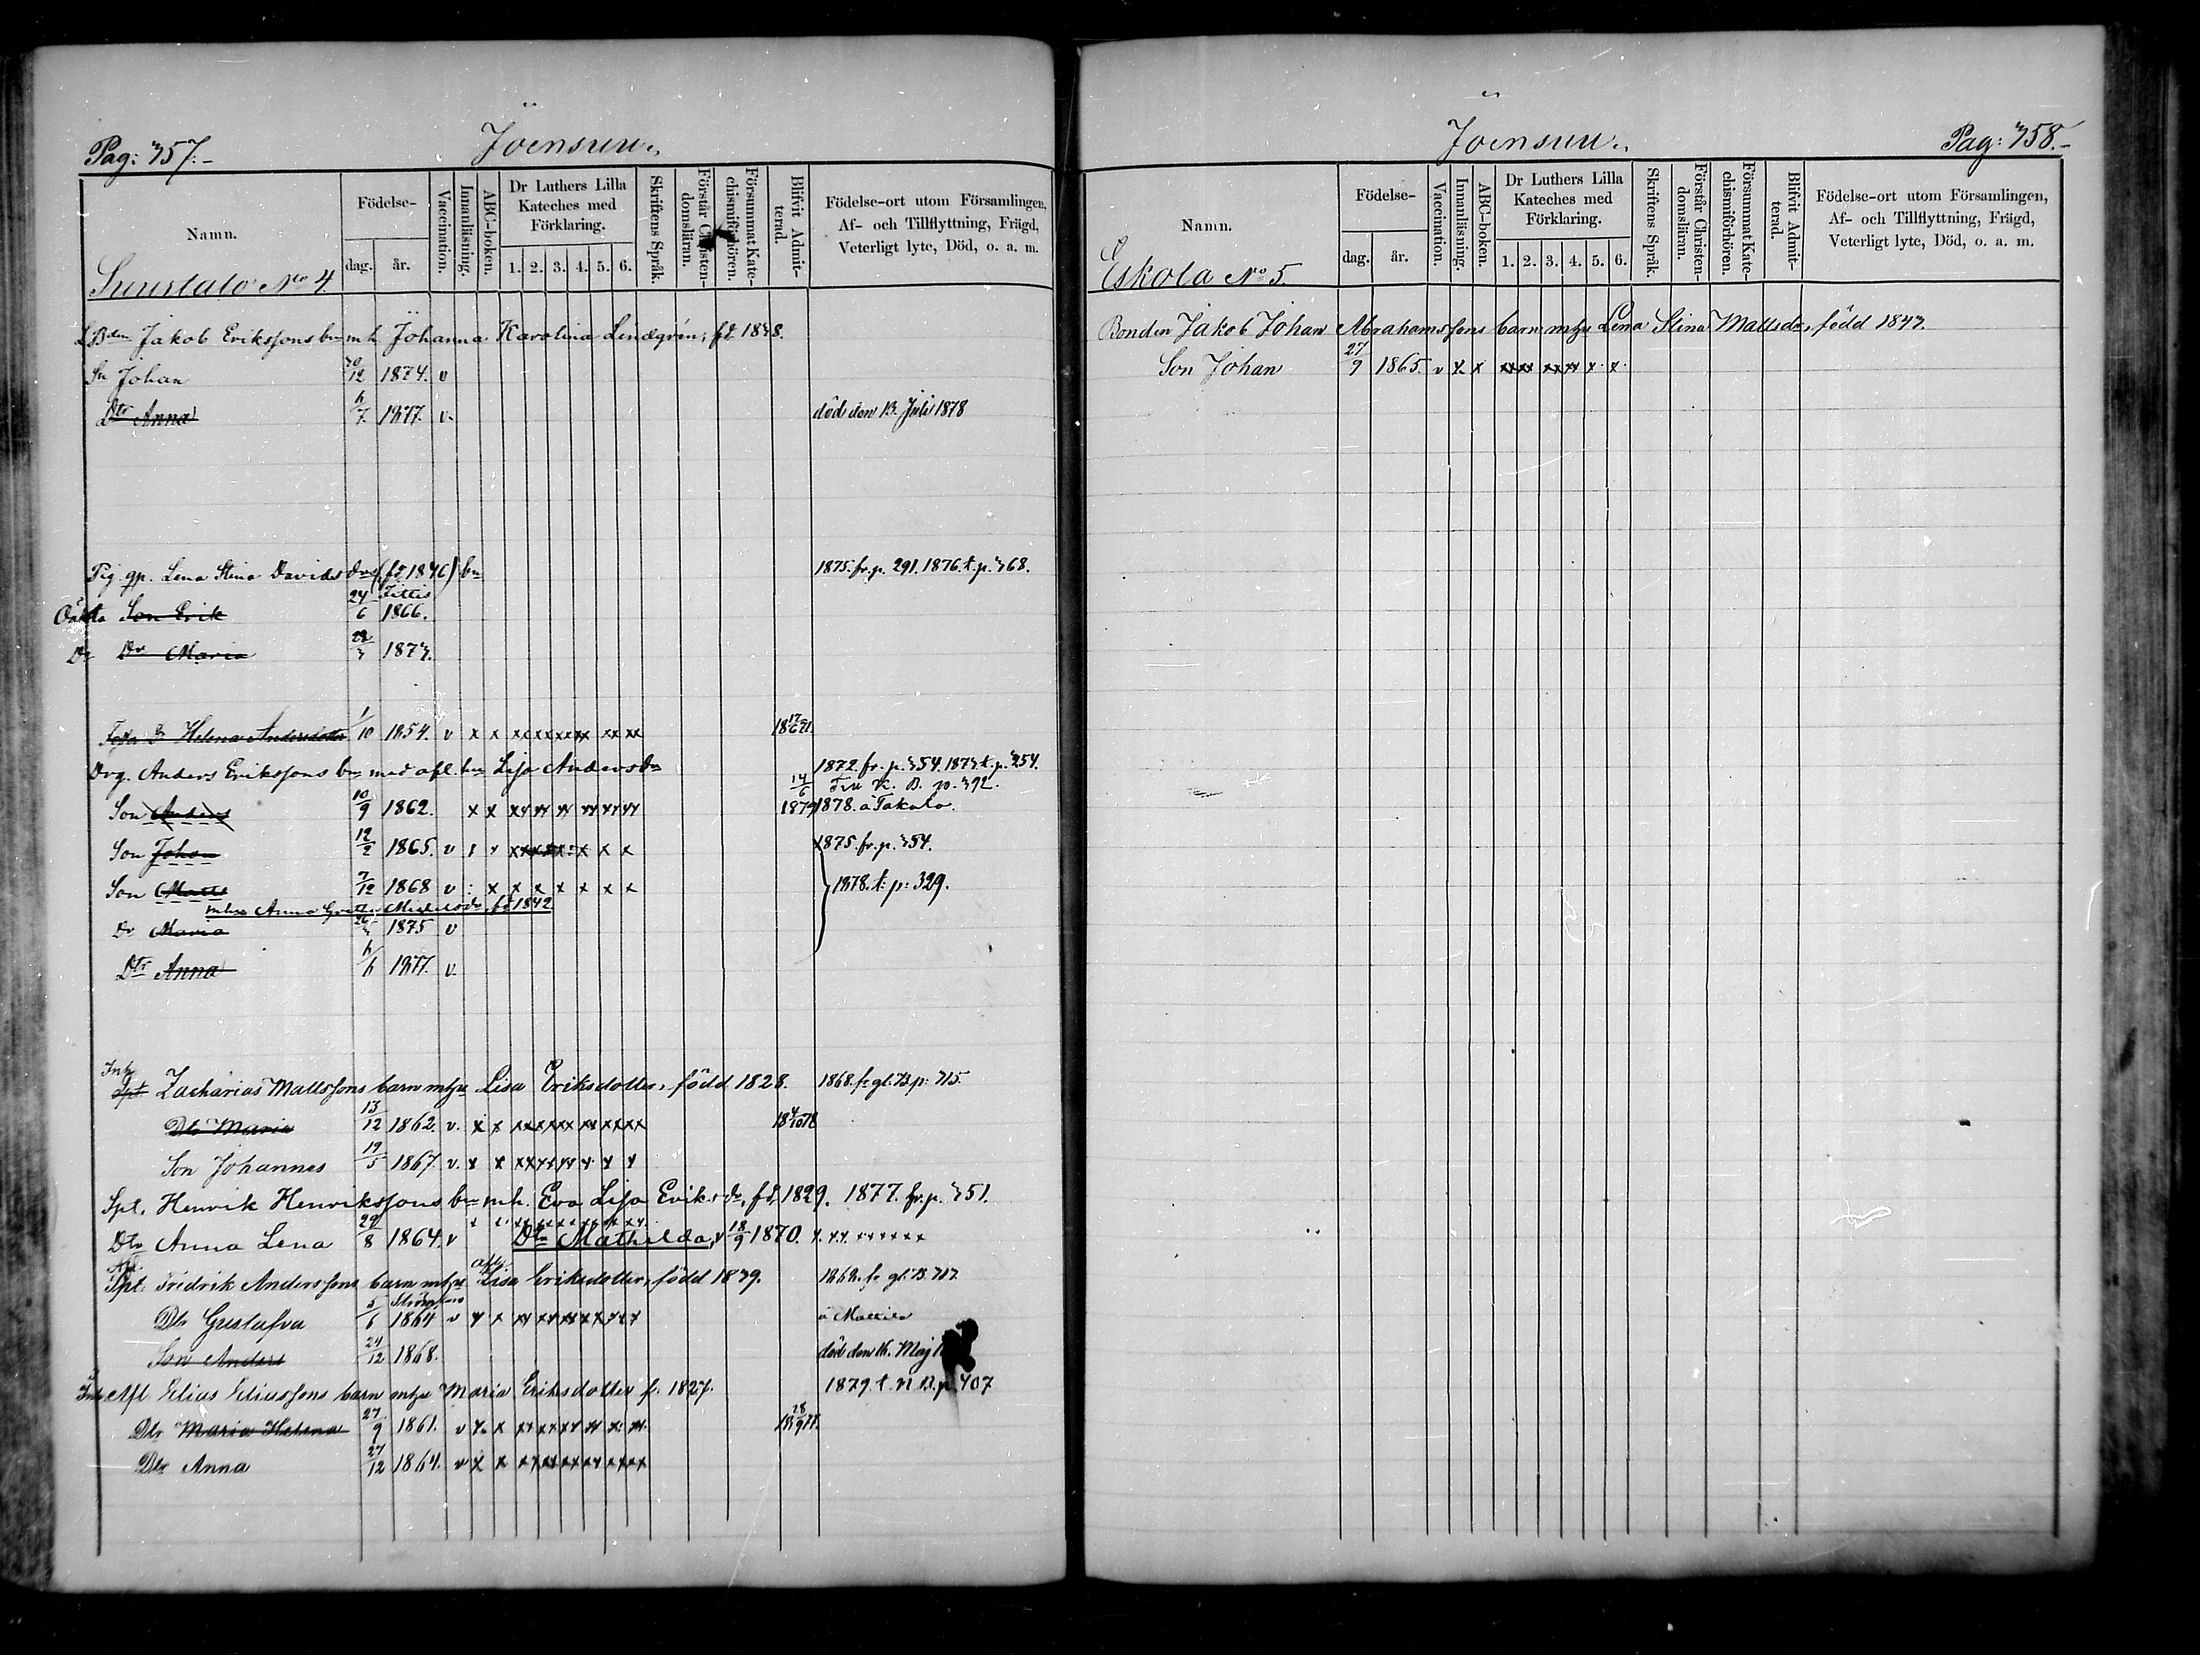 Pag: 357.
Joensuu.
Namn.
Födelse-
dag.
år.
Vaccination.
Innanläsning.
ABC-boken.
Dr Luthers Lilla
Kateches med
Förklaring.
1. 2. 3. 4. 5. 6.
Skriftens Språk.
Förstår Christen-
domsläran.
Försummat Kate-
chismiförhören.
Blifvit Admit-
terad.
Födelse-ort utom Församlingen,
Af- och Tillflyttning, Frägd,
Veterligt lyte, Död, o. a. m.
No 4.
Jakob Erikssons bn m h Johanna Karolina Lindgrén, fd 1838.
Sn Johan 30/12 1874. v
Dtr Anna 4/7 1877. v. död den 13. Juli 1878
Pig. gp. Lena Stina Davidsdrs (fd 1846) bn 1875. fr. p. 291. 1876. t. p. 368.
Son Erik 24/6 1866.
Dr Maria 1873.
Dr Helena Andersdotter 1/10 1854. v x x xx xx xx xx xx xx 18 17/6 71
Drg. Anders Erikssons bn med afl. hu Lisa Andersdr 1872. fr. p. 354. 1873. t. p. 254.
Fr K. B. p. 392.
Son Anders 10/9 1862. x x xx xx xx xx xx xx 14/6 1879 1878. å Takala.
Son Johan 12/2 1865. v 1875. fr. p. 354.
Son Matts 7/12 1868 v : x x x x x x x 1878. t. p: 329.
mhu Anna Greta Michelsdr, fd 1842
Dr Maria 1875 v
Dtr Anna 1877. v.
Inh
Spt Zacharias Mattssons barn mhu Lisa Eriksdotter, född 1828. 1868. fr gl. B p: 315.
Dtr Maria 13/12 1862. v. x x xx xx xx xx xx xx 18 4/10 78
Son Johannes 19/5 1867. v. x x xx xx xx x x x
Spt. Henrik Henrikssons bn m h. Eva Lisa Eriksdr, fd, 1829. 1877. fr. p. 351.
Dtr Anna Lena 29/8 1864. v Dtr Mathilda, v 18/9 1870. x. x x. x x x x x x
Afl.
Spt. Fridrik Anderssons barn mhu Lisa Eriksdotter, född 1839. 1862. fr gl. B. 317.
Dtr Gustafva 5/6 1864 v x x xx xx xx xx xx å Mattila
Son Anders 24/12 1868. död den 16. Maj
Inh Afl Elias Eliassons barn mhu Maria Eriksdotter f. 1827. 1879. t. N. B. p. 407
Dtr Maria Helena 27/9 1861. v x x xx xx xx xx xx xx 18 28/9 77.
Dtr Anna 27/12 1864. v x x xx xx xx xx xx xx
Joensuu.
Pag: 358.
Namn.
Födelse-
dag.
år.
Vaccination.
Innanläsning.
ABC-boken.
Dr Luthers Lilla
Kateches med
Förklaring.
1. 2. 3. 4. 5. 6.
Skriftens Språk.
Förstår Christen-
domsläran.
Försummat Kate-
chismiförhören.
Blifvit Admit-
terad.
Födelse-ort utom Församlingen,
Af- och Tillflyttning, Frägd,
Veterligt lyte, Död, o. a. m.
Eskola No 5.
Bonden Jakob Johan Abrahamssons barn mhu Lena Stina Mattsdr, född 1843.
Son Johan 27/9 1865. v x x xx xx xx xx x x